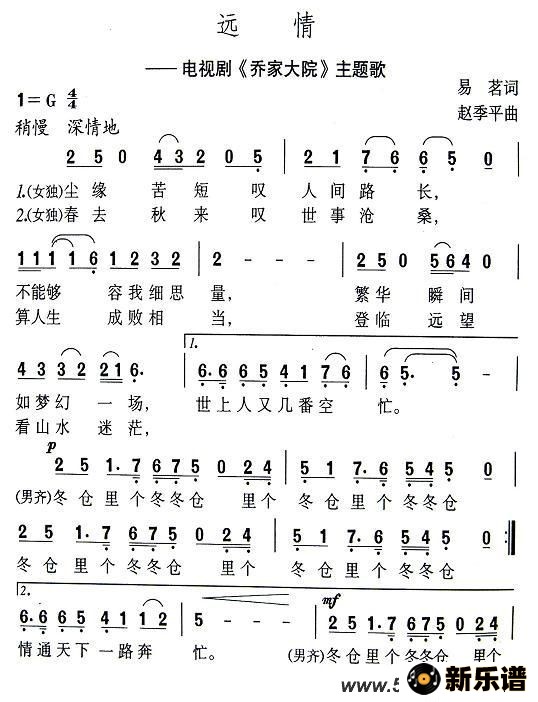 远 情
—— 电视剧《乔家大院》主题歌
1=G 4/4
易 茗词
赵季平曲
稍慢 深情地
2 5 0 4 3 2 0 5 | 2 1 7 6 6 5 0 |
1.(女独)尘 缘 苦 短 叹 人 间 路 长,
2.(女独)春 去 秋 来 叹 世 事 沧 桑,
1 1 1 1 6 1 2 3 2 | 2 - - - | 2 5 0 5 6 4 0 |
不能够 容我细思 量, 繁华 瞬间
算人生 成败相 当, 登临 远望
4 3 3 2 2 1 6. | 1. 6. 6 6 5 4 1 6 6 | 6. 5 5 - |
如梦幻 一场, 世上人又几番空 忙。
看山水 迷茫,
p
2 5 1. 7 6 7 5 0 2 4 | 5 1 7. 6 5 4 5 0 |
(男齐)冬 仓 里 个 冬冬仓 里个 冬 仓 里 个 冬冬仓
2 5 1. 7 6 7 5 0 2 4 | 5 1 7. 6 5 4 5 0 :||
冬 仓 里 个 冬冬仓 里个 冬 仓 里 个 冬冬仓
2. mf
6. 6 6 5 4 1 1 2 | 5 - - - | 2 5 1. 7 6 7 5 0 2 4 |
情通天下 一路奔 忙。 (男齐)冬 仓 里 个 冬冬仓 里个
www.5
新乐谱